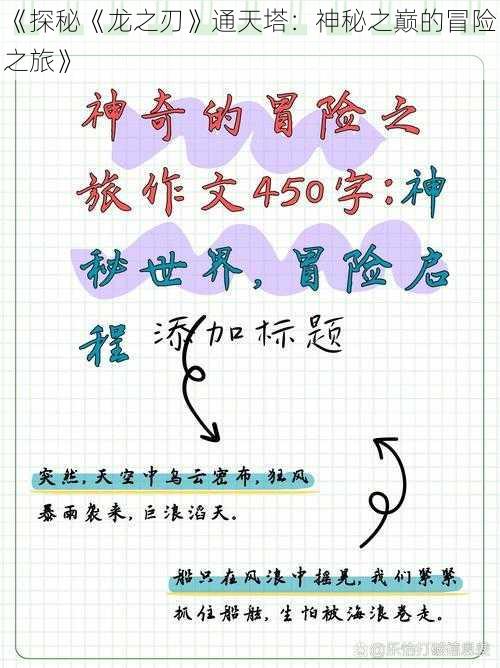 《探秘《龙之刃》通天塔：神秘之巅的冒险
之旅》
神奇的冒险之
旅作文450字:神
秘世界,冒险启
程 添加标题
突然,天空中乌云密布,狂风
暴雨袭来,巨浪滔天。
船只在风浪中摇晃,我们紧紧
抓住船舷,生怕被海浪卷走。